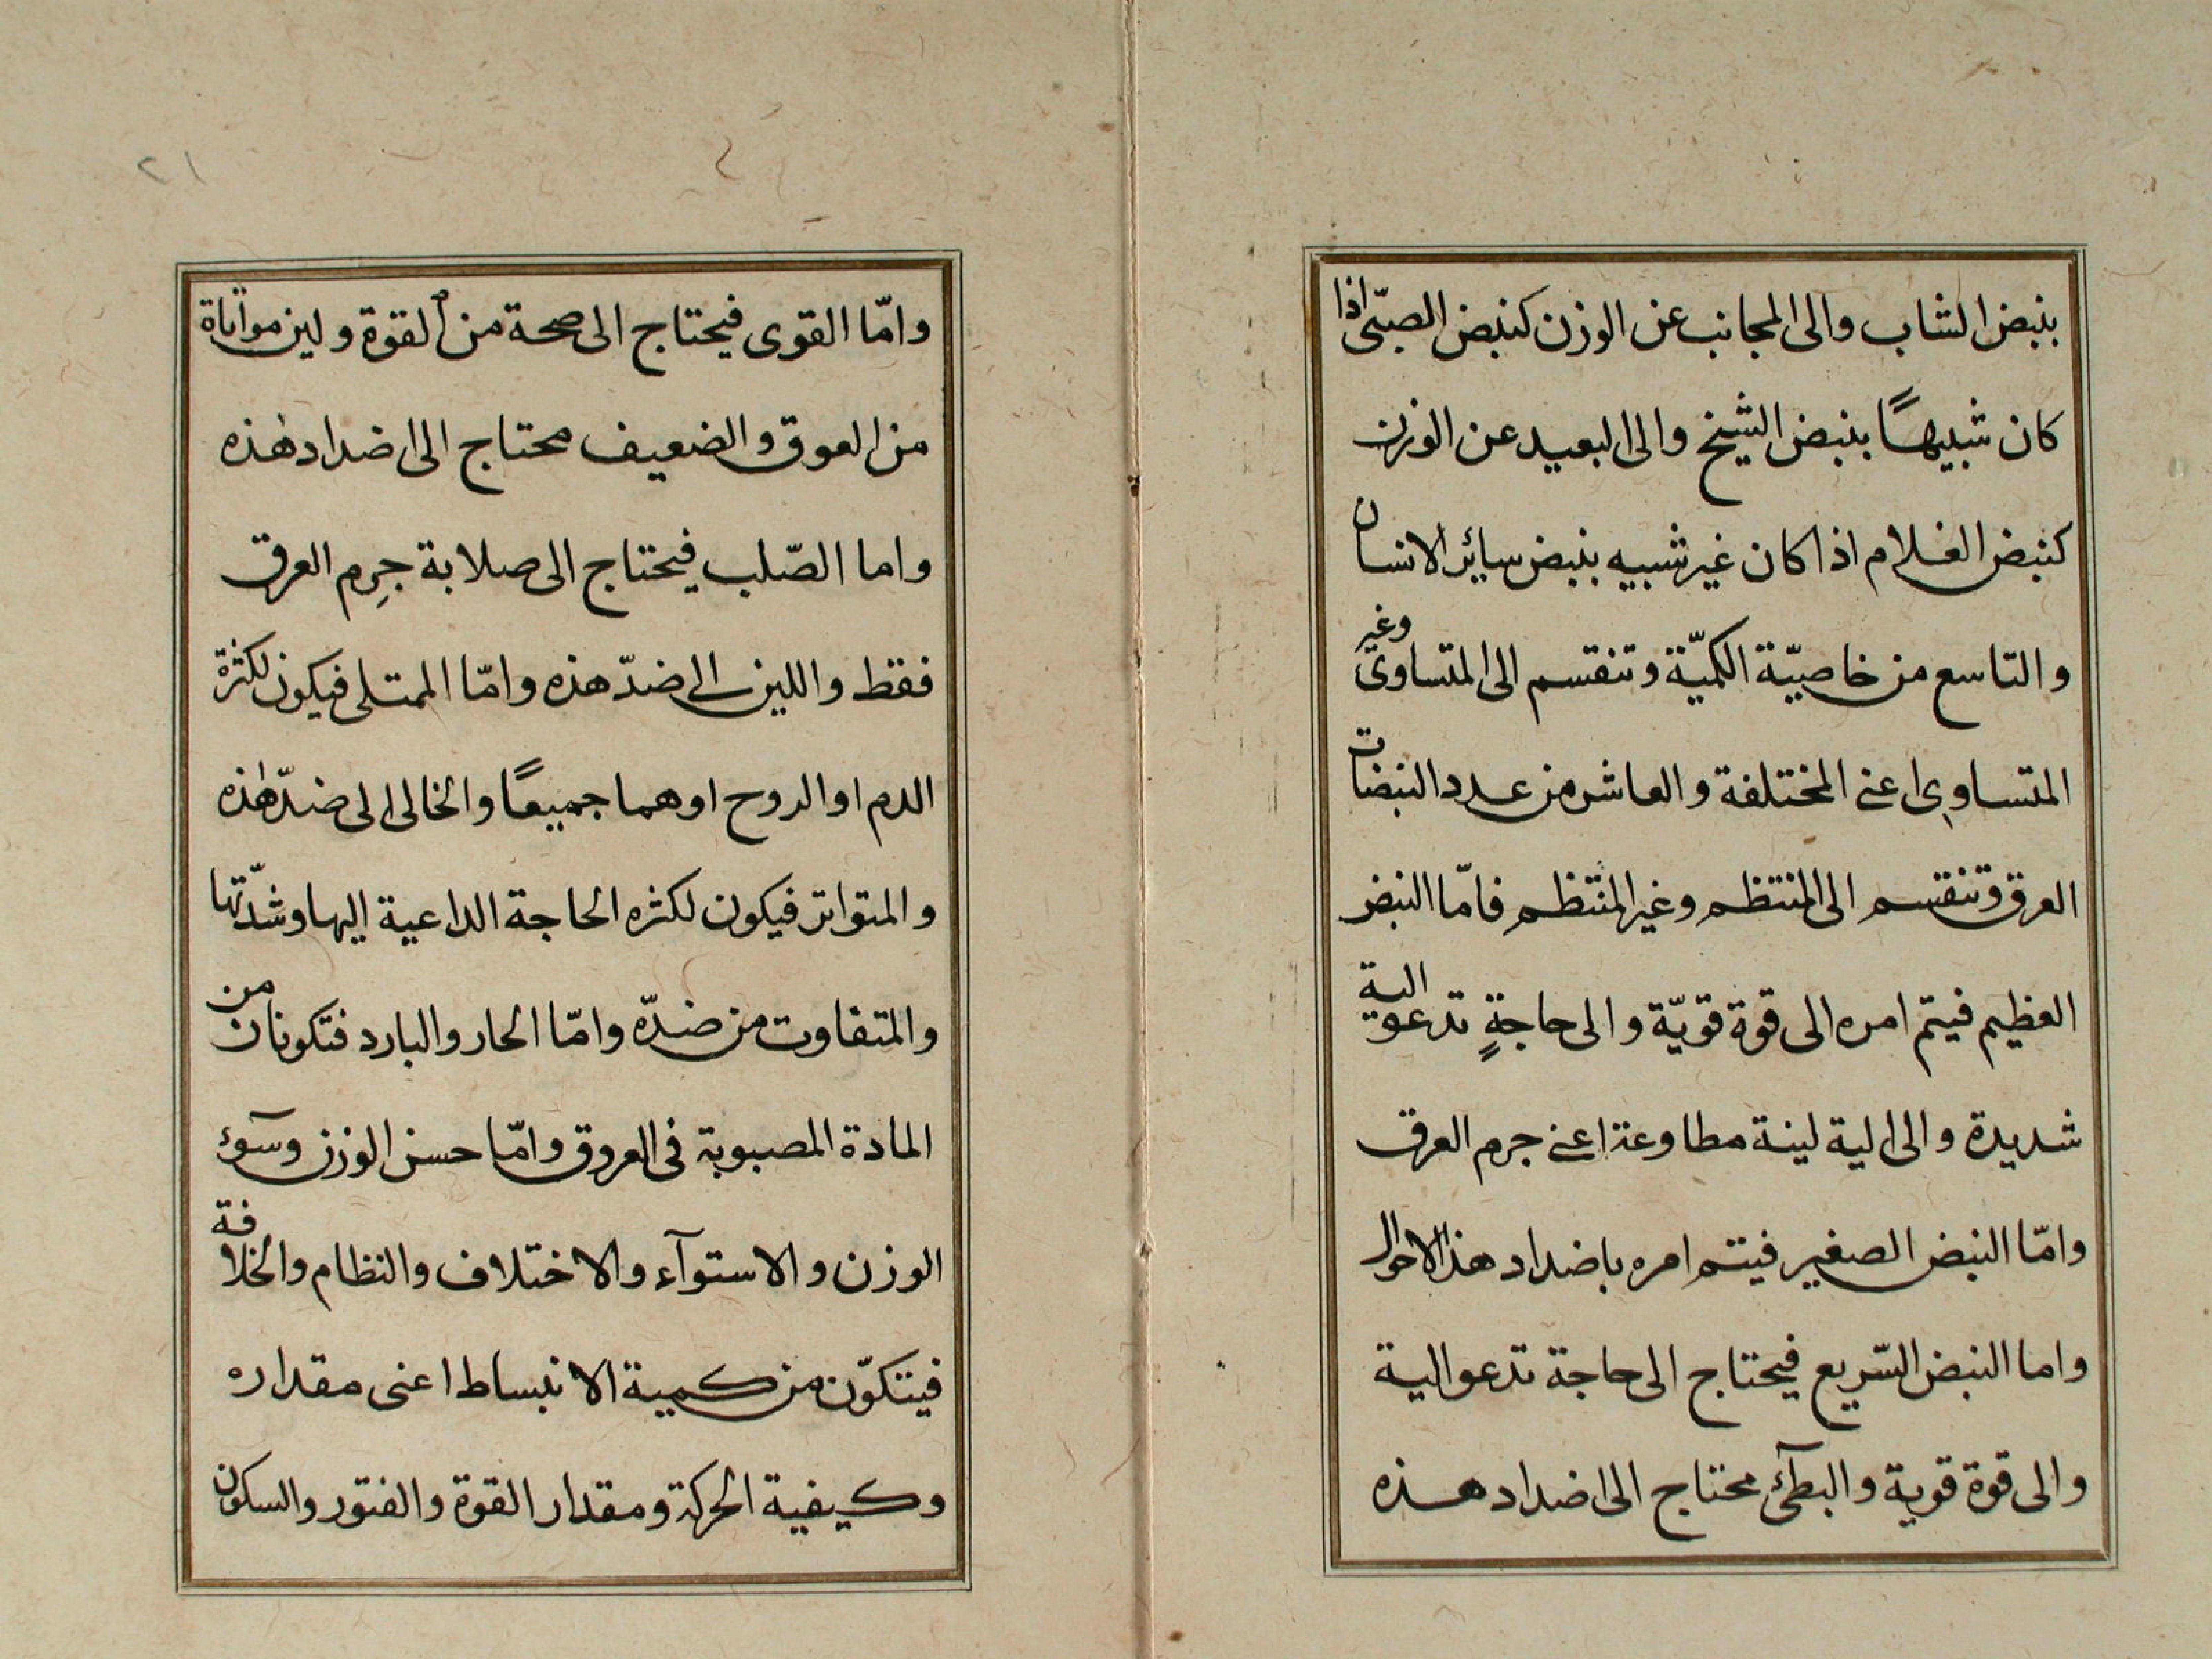 بنبض الشاب والى المجانب عن الوزن كنبض الصبّى اذا
كان شبيهًا بنبض الشيخ والى البعيد عن الوزن
كنبض الغلام اذا كان غير شبيه بنبض سائر الانسان
والتاسع من خاصيّة الكميّة وتنقسم الى المتساوى وغير
المتساوى اعنى المختلفة والعاشر من عدد النبضات
العرق وتنقسم الى المنتظم وغير المنتظم فامّا النبض
العظيم فيتم امره الى قوة قويّة والى حاجةٍ تدعو الية
شديدة والى الية لينة مطاوعة اعنى جرم العرق
وامّا النبض الصغير فيتم امره باضداد هذ الاحوال
واما النبض السّريع فيحتاج الى حاجة تدعو الية
والى قوة قوية والبطئ محتاج الى اضداد هذه
٢١
وامّا القوى فيحتاج الى صحة من القوة ولين مواتاة
من العوق والضعيف محتاج الى اضداد هذه
واما الصّلب فيحتاج الى صلابة جرِم العرق
فقط واللين الى ضدّ هذه وامّا الممتلى فيكون لكثرة
الدم او الروح او هما جميعًا والخالى الى ضدّ هذه
والمتواتر فيكون لكثره الحاجة الداعية اليها وشدّتها
والمتفاوت من ضدّه وامّا الحار والبارد فتكونان من
المادة المصبوبة فى العروق وامّا حسن الوزن وسوء
الوزن والاستوآء والاختلاف والنظام والخلافة
فيتكوّن من كمية الانبساط اعنى مقداره
وكيفية الحركة ومقدار القوة والفتور والسكون